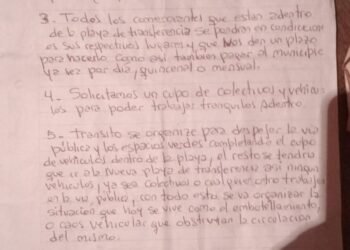 3 - Todos los comerciantes que estan adentro
de la playa de transferencia se pondran en condiciones
es sus respectivos lugares y que nos den un plazo
para hacerlo. Como asi tambien pagar al municipio
ya sea por dia, quincenal o mensual.
4 - Solicitamos un cupo de colectivos y vehicu
los para poder trabajar tranquilos adentro.
5 - transito se organize para despejar la via
pública y los espacios verdes completando el cupo
de vehiculos dentro de la playa, el resto se tendria
que ir a la nueva playa de transferencia asi ningun
vehiculos, ya sea colectivos o cualquier otro trabajan
en la via, publica, con todo esto se va organizar la
situacion que hoy se vive como el embotellamiento,
o caos vehicular que obstruyan la circulacion
del mismo.